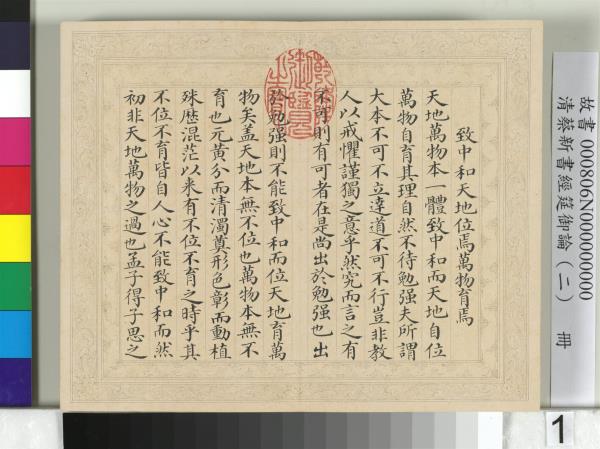 致中和天地位焉萬物育焉
天地萬物本一體致中和而天地自位
萬物自育其理自然不待勉强夫所謂
大本不可不立達道不可不行豈非教
人以戒懼謹獨之意乎然究而言之有
不可則有可者在是尚出於勉强也出
於勉强則不能致中和而位天地育萬
物矣盖天地本無不位也萬物本無不
育也元黄分而清濁奠形色彰而動植
殊歴混茫以来有不位不育之時乎其
不位不育皆自人心不能致中和而然
初非天地萬物之過也孟子得子思之
故書 000806N000000000
清蔡新書經筵御論（二） 冊
1